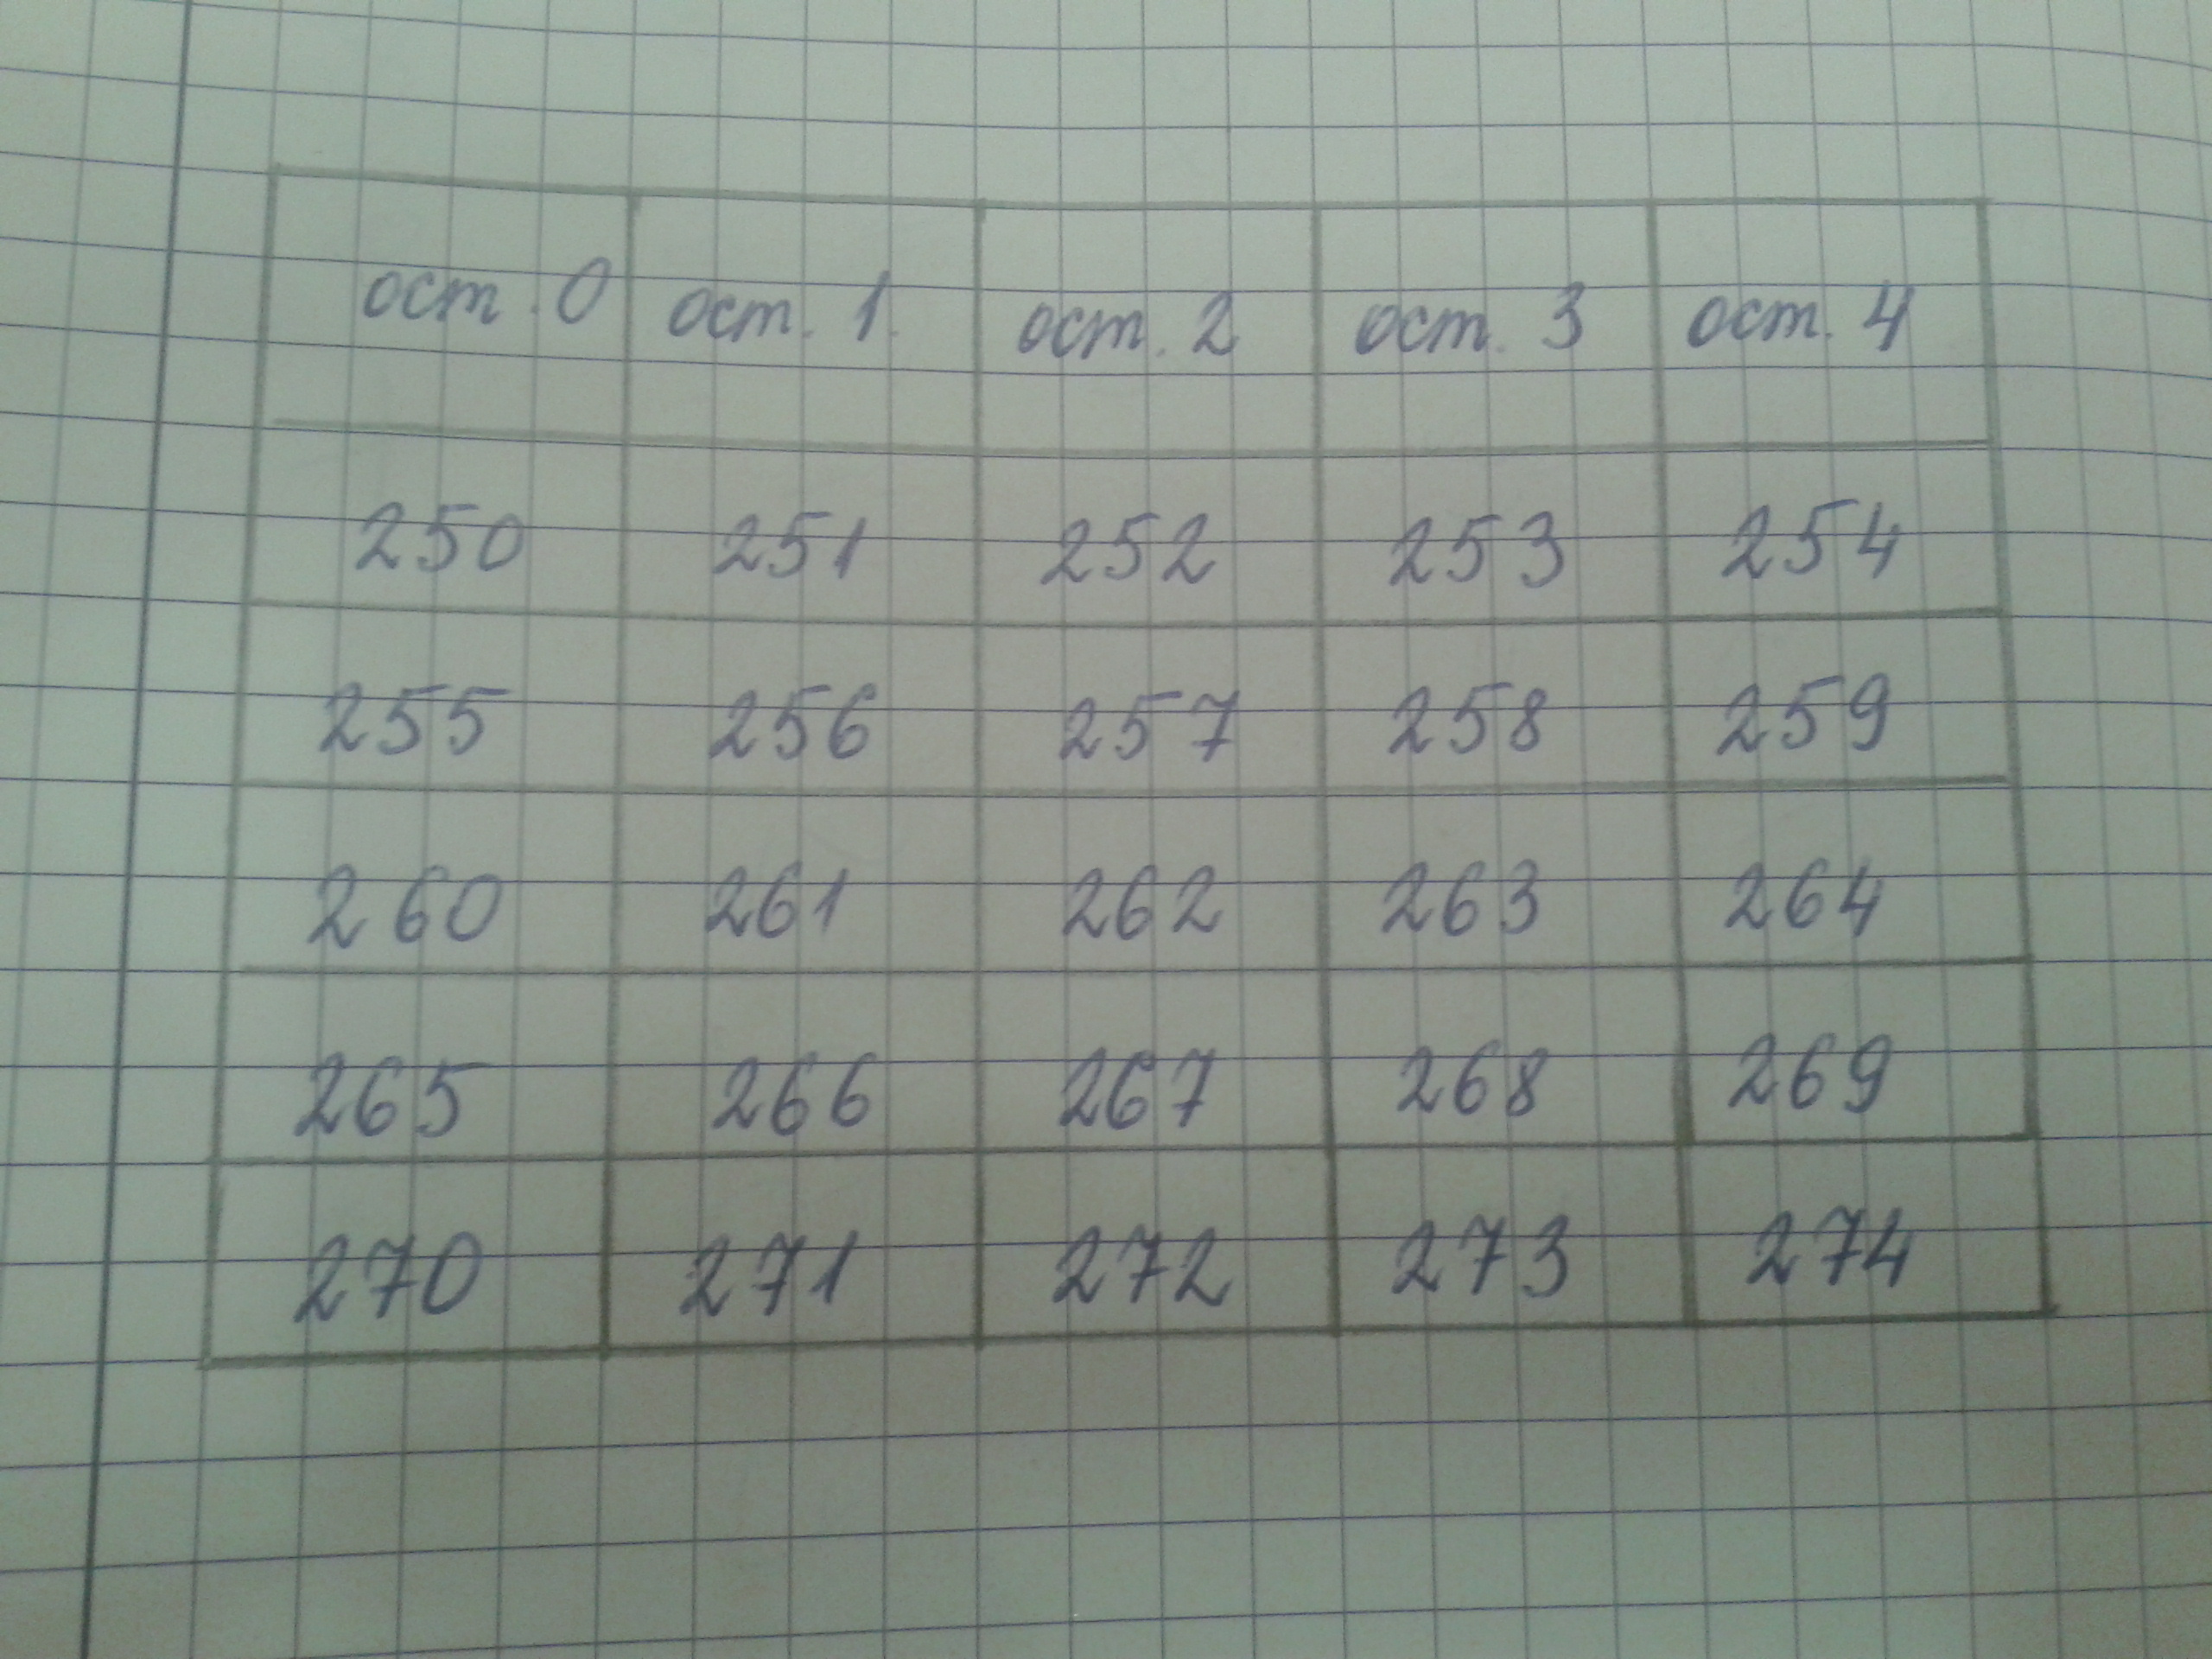 ост. 0 ост. 1. ост. 2 ост. 3 ост. 4
250 251 252 253 254
255 256 257 258 259
260 261 262 263 264
265 266 267 268 269
270 271 272 273 274